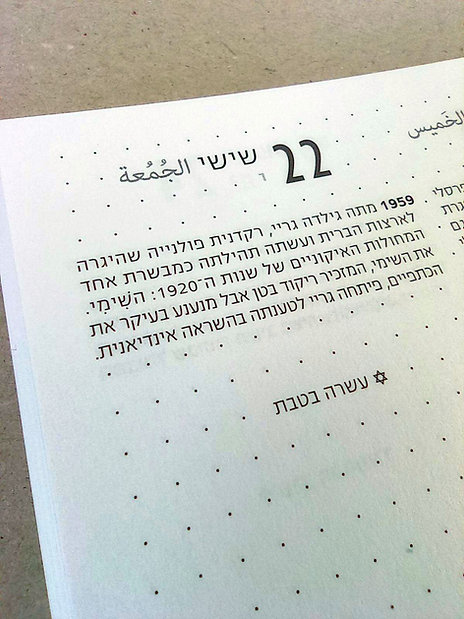 الخَميس
22 שישי الجُمُعة
ו
1959 מתה גילדה גריי, רקדנית פולנייה שהיגרה
לארצות הברית ועשתה תהילתה כמבשרת אחד
המחולות האיקוניים של שנות ה־1920: השִׁימִי.
את השימי, המזכיר ריקוד בטן אבל מנענע בעיקר את
הכתפיים, פיתחה גריי לטענתה בהשראה אינדיאנית.
✡ עשרה בטבת